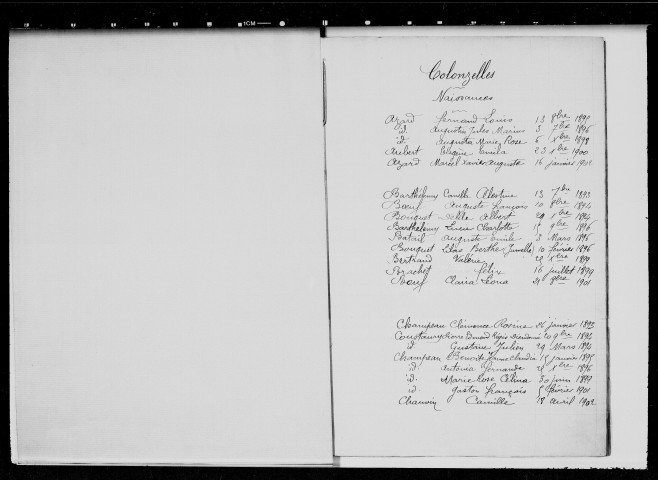 1CM
Colonzelles
Naissances
Azard Fernand Louis 13 8bre 1890
id Augustin Jules Marius 3 7bre 1896
id Augusta Marie Rose 6 Xbre 1898
Aribert Eugène Emile 23 Xbre 1900
Azard Marcel Xavier Auguste 16 janvier 1902
Barthélemy Camille Célestine 13 7bre 1893
Boeuf Auguste François 10 8bre 1894
Bouquet Albert 29 Xbre 1894
Barthélemy Lucie Charlotte 15 9bre 1896
Batail Auguste Emile 3 Mars 1895
Bouquet Berthe (Jumelle) 10 février 1896
Bertrand Valérie 28 Xbre 1899
Brachet Félix 16 juillet 1899
Boeuf Claria Léona 8bre 1901
Champeau Clémence Rosine 26 janvier 1893
Coustaury Pierre Régis Dieudonné 20 9bre 1894
id Gustave Julien 29 Mars 1896
Champeau Benoite Jeanne Claudia 15 janvier 1895
id Antonia Fernande Xbre 1896
id Marie Rose Célina 30 juin 1899
id Gaston François 5 février 1901
Chauvin Camille 18 avril 1902